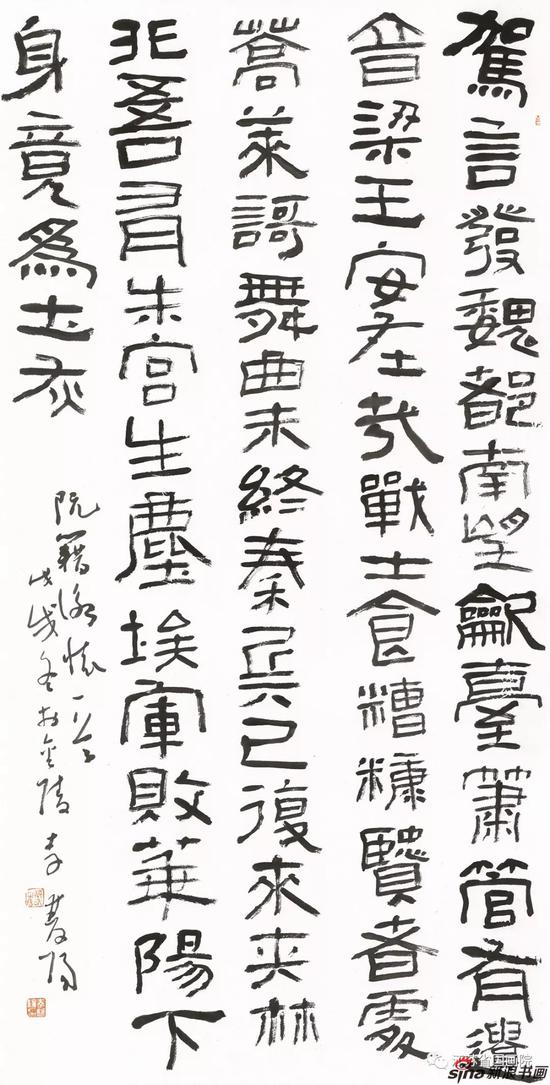 駕言發魏都南望龡臺簫管有遺
音梁王安在哉戰士食糟糠賢者處
蒿萊謌舞曲未終秦兵已復來夾林
非吾有朱宮生塵埃軍敗華陽下
身竟爲土灰
阮籍詠懷一首
戊戌冬於金陵李雙陽
省国画院
sina新浪书画